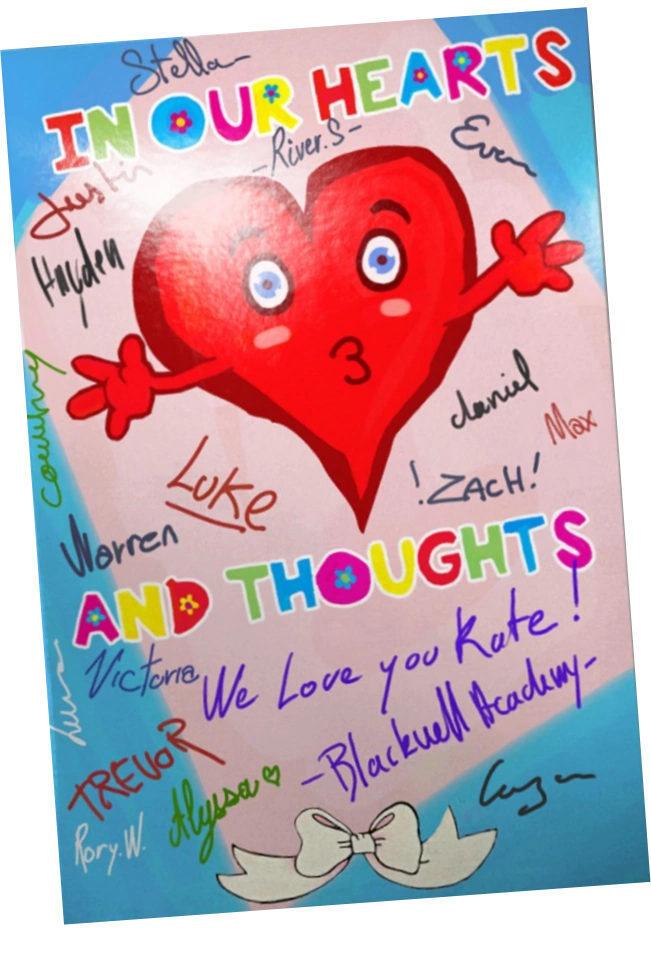 Stella
IN OUR HEARTS
-River.S-
Evan
Justin
Hayden
courtney
daniel
Max
Luke
!ZACH!
Warren
AND THOUGHTS
Victoria
We Love you Kate!
-Blackwell Academy-
TREVOR
Alyssa
Rory.W.